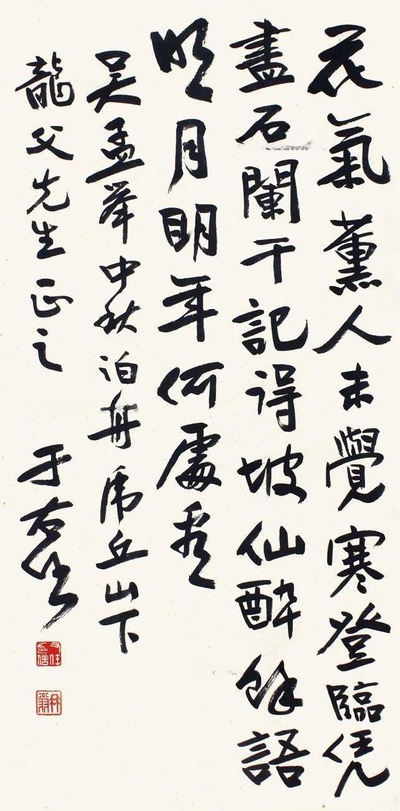 花氣薰人未覺寒登臨凭
盡石闌干記得坡仙醉餘語
明月明年何處看
吳孟舉中秋泊舟虎丘山下
龍父先生正之 于右任
右任